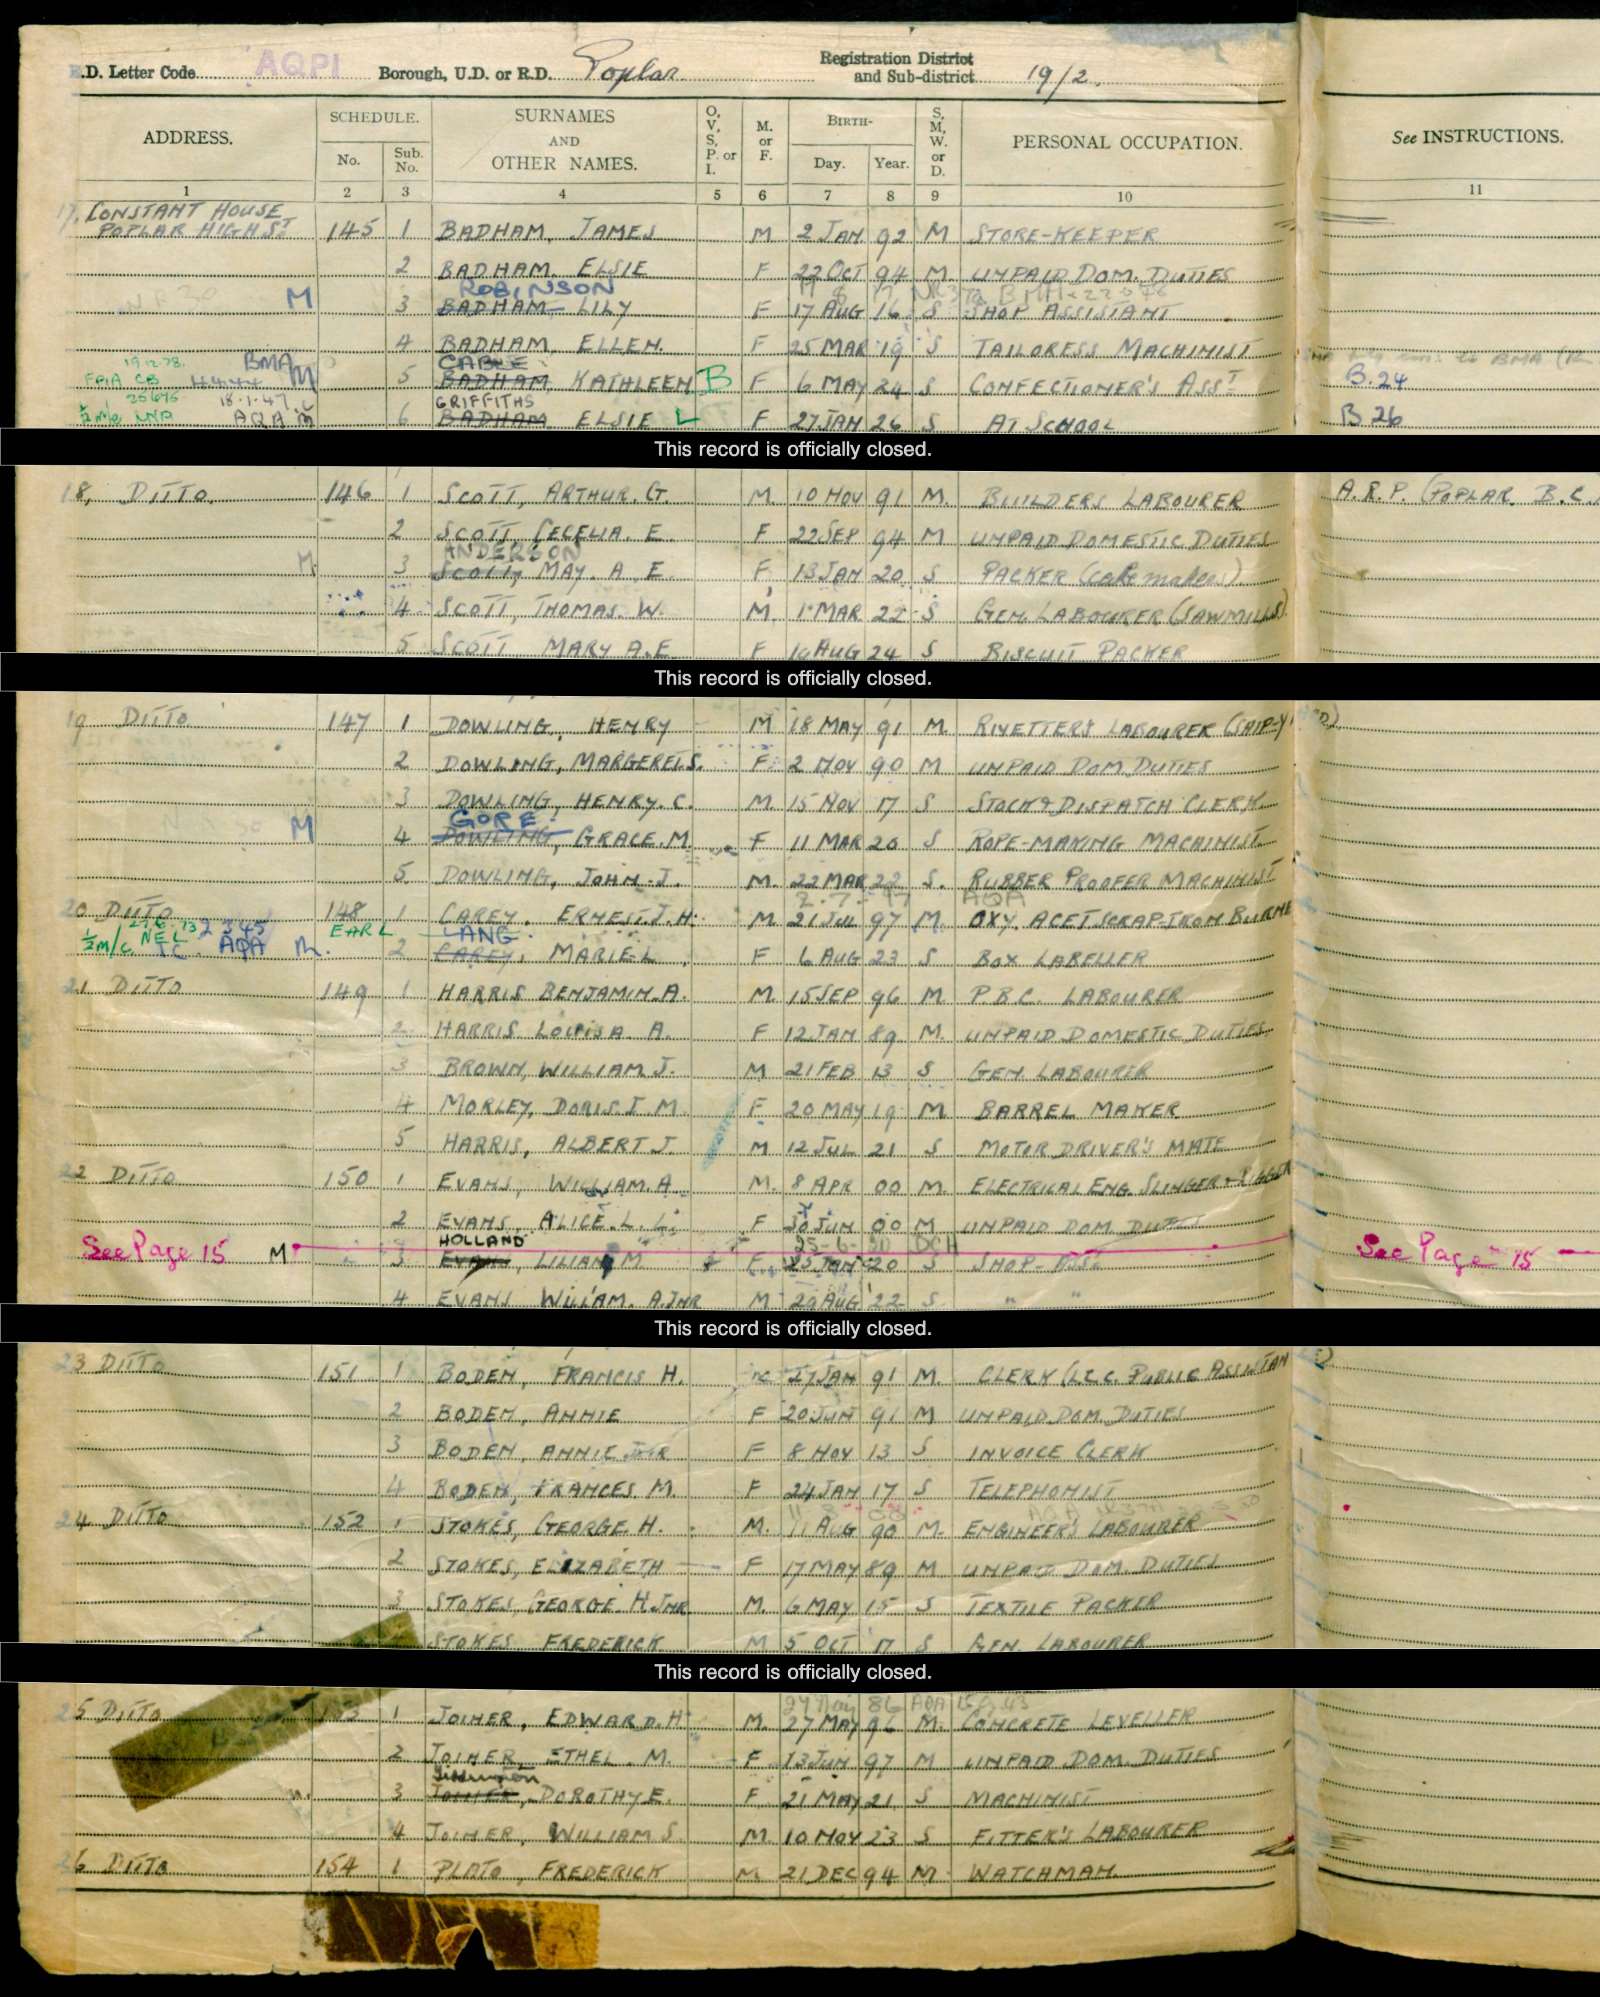 E.D. Letter Code AQPI Borough, U.D. or R.D. Poplar Registration District and Sub-district 19/2.
ADDRESS. SCHEDULE. No. Sub. No. SURNAMES AND OTHER NAMES. O, V, S, P. or I. M. or F. BIRTH- Day. Year. S, M, W. or D. PERSONAL OCCUPATION. See INSTRUCTIONS.
1 2 3 4 5 6 7 8 9 10 11
17, CONSTANT HOUSE
POPLAR HIGH ST 145 1 BADHAM, JAMES M 2 JAN 92 M STORE-KEEPER
2 BADHAM, ELSIE F 22 OCT 94 M UNPAID DOM. DUTIES
ROBINSON
M 3 BADHAM LILY F 17 AUG 16 S SHOP ASSISTANT
4 BADHAM, ELLEN. F 25 MAR 19 S TAILORESS MACHINIST
19.12.78. BMA CABLE
FPIA CB M 5 BADHAM, KATHLEEN B F 6 MAY 24 S CONFECTIONER'S ASST B.24
25675 18.1.47 GRIFFITHS
AQA M 6 BADHAM ELSIE L F 27 JAN 26 S AT SCHOOL B 26
This record is officially closed.
18, DITTO 146 1 SCOTT, ARTHUR. G. M. 10 NOV 91 M. BUILDERS LABOURER A.R.P. (POPLAR B.C.
2 SCOTT, CECELIA. E. F 22 SEP 94 M UNPAID DOMESTIC DUTIES
ANDERSON
M. 3 SCOTT, MAY. A. E. F 13 JAN 20 S PACKER (cake makers)
4 SCOTT, THOMAS. W. M. 1 MAR 22 S GEN. LABOURER (SAWMILLS)
5 SCOTT MARY A.E. F AUG 24 S BISCUIT PACKER
This record is officially closed.
19 DITTO 147 1 DOWLING, HENRY M 18 MAY 91 M. RIVETTER'S LABOURER (SHIP-Y
2 DOWLING, MARGERET.S. F. 2 NOV 90 M UNPAID DOM. DUTIES
3 DOWLING, HENRY. C. M. 15 NOV 17 S STOCK & DISPATCH CLERK
GORE
M 4 DOWLING, GRACE. M. F 11 MAR 20 S ROPE-MAKING MACHINIST
5. DOWLING, JOHN. J. M. 22 MAR 22 S. RUBBER PROOFER MACHINIST
2.7.97 AQA
20 DITTO 148 1 CAREY. ERNEST.J.H. M. 21 JUL 97 M. OXY. ACET SCRAP-IRON BURNE
27.6.73 2345 EARL LANG
1/2 M/C NEL TC. AQA M. 2 CAREY, MARIE L F 6 AUG 23 S BOX LABELLER
21 DITTO 149 1 HARRIS BENJAMIN. A. M. 15 SEP 96 M P.B.C. LABOURER
2 HARRIS LOUISA. A. F 12 JAN 89 M. UNPAID DOMESTIC DUTIES
3 BROWN, WILLIAM J. M 21 FEB 13 S GEN. LABOURER
4 MORLEY, DORIS. I. M. F 20 MAY 19 M BARREL MAKER
5 HARRIS, ALBERT J. M 12 JUL 21 S MOTOR DRIVER'S MATE
22 DITTO 150 1 EVANS, WILLIAM. A. M. 8 APR 00 M. ELECTRICAL ENG. SLINGER & RIGGER
2 EVANS. ALICE. L. L. F 30 JUN 00 M UNPAID DOM. DUTIES
HOLLAND DCH
See Page 15 M 3 EVANS, LILIAN M F 25 JAN 20 S SHOP- See Page 15
4 EVANS WILLIAM. A. JNR M 29 AUG 22 S " "
This record is officially closed.
23 DITTO 151 1 BODEN, FRANCIS H. 27 JAN 91 M. CLERK (L.C.C. PUBLIC ASSISTAN
2 BODEN, ANNIE F 20 JUN 91 M UNPAID DOM. DUTIES
3 BODEN, ANNIE JNR F 8 NOV 13 S INVOICE CLERK
4 BODEN, FRANCES. M. F 24 JAN 17 S TELEPHONIST
24 DITTO 152 1 STOKES, GEORGE. H. M. 11 AUG 90 M. ENGINEER'S LABOURER
2 STOKES, ELIZABETH F 17 MAY 89 M UNPAID DOM. DUTIES
3 STOKES, GEORGE. H. JNR. M. 6 MAY 15 S TEXTILE PACKER
STOKES FREDERICK M 5 OCT 17 S GEN. LABOURER
This record is officially closed.
27 86 AQA
25 DITTO 153 1 JOINER, EDWARD. H. M. 27 MAY 96 M. CONCRETE LEVELLER
2 JOINER, ETHEL. M. F. 13 JUN 97 M UNPAID DOM. DUTIES
3 JOINER, DOROTHY E. F 21 MAY 21 S MACHINIST
4 JOINER, WILLIAM S. M. 10 NOV 23 S FITTER'S LABOURER
26 DITTO 154 1 PLATO, FREDERICK M 21 DEC 94 M WATCHMAN.